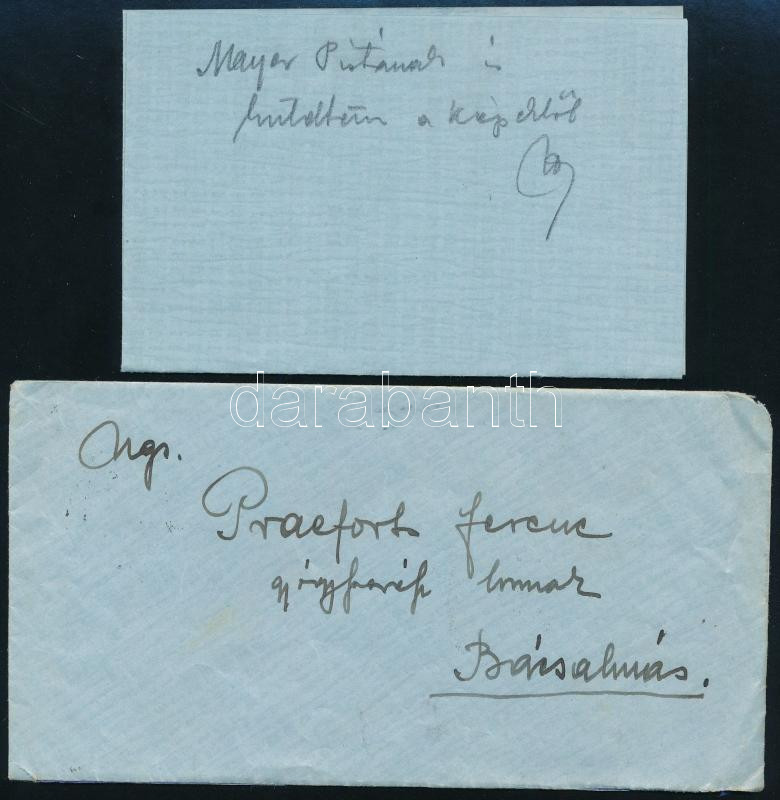 Mayer Pistának is
küldtem a képekből
darabanth
Ngs.
Praefort Ferenc
gyógyszerész úrnak
Bácsalmás.